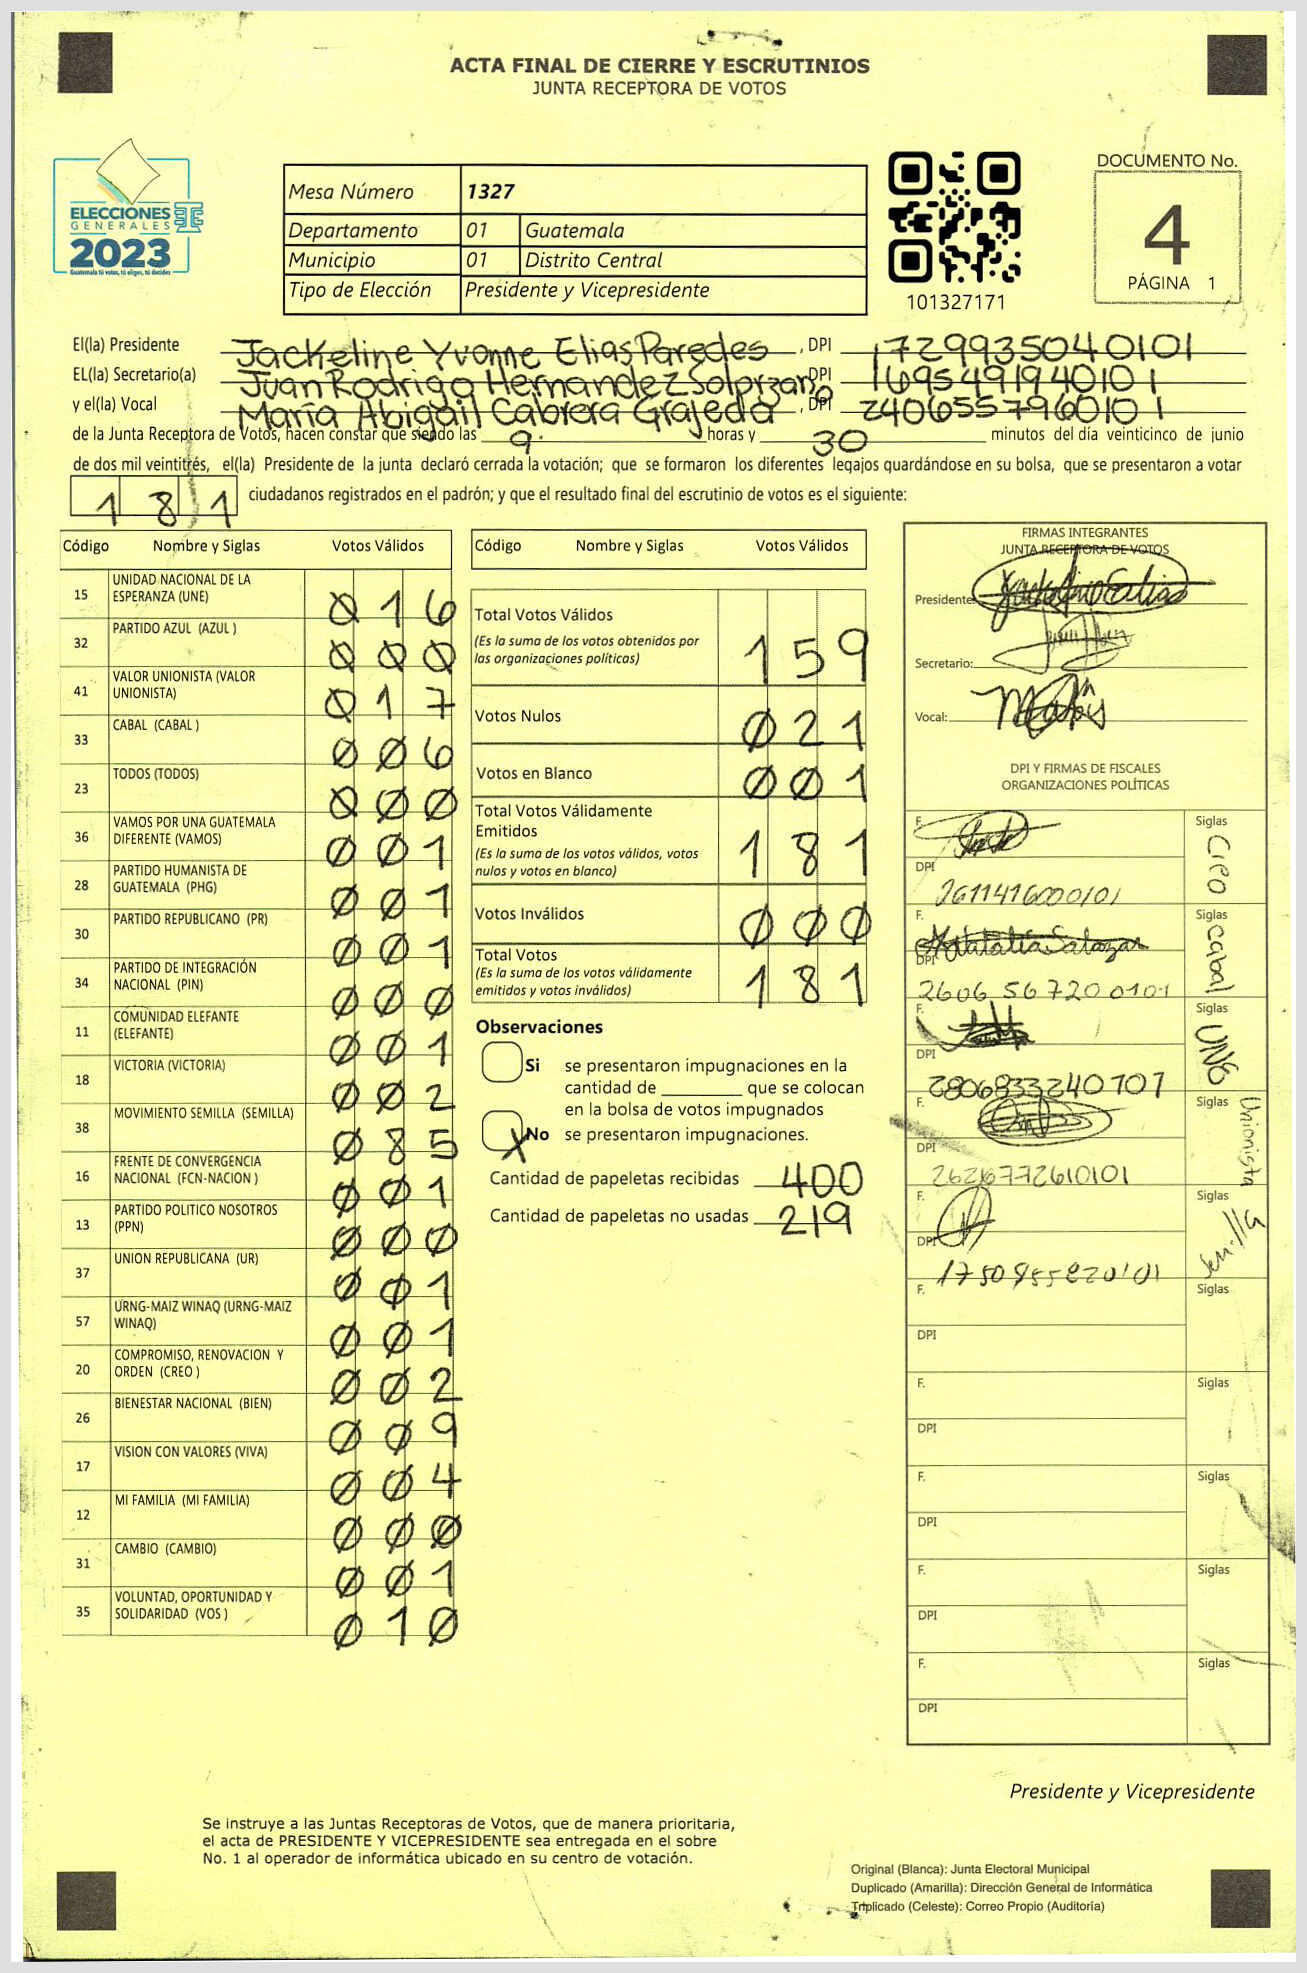 ACTA FINAL DE CIERRE Y ESCRUTINIOS
JUNTA RECEPTORA DE VOTOS
ELECCIONES
GENERALES
2023
Guatemala tú votas, tú eliges, tú decides
Mesa Número 1327
Departamento 01 Guatemala
Municipio 01 Distrito Central
Tipo de Elección Presidente y Vicepresidente
101327171
DOCUMENTO No.
4
PÁGINA 1
El(la) Presidente Jackeline Yvonne Elias Paredes, DPI 1729935040101
EL(la) Secretario(a) Juan Rodrigo Hernandez Solorzano, DPI 1695491940101
y el(la) Vocal María Abigail Cabrera Grajeda, DPI 2406557960101
de la Junta Receptora de Votos, hacen constar que siendo las 9 horas y 30 minutos del día veinticinco de junio
de dos mil veintitrés, el(la) Presidente de la junta declaró cerrada la votación; que se formaron los diferentes legajos guardándose en su bolsa, que se presentaron a votar
181 ciudadanos registrados en el padrón; y que el resultado final del escrutinio de votos es el siguiente:
Código Nombre y Siglas Votos Válidos
15 UNIDAD NACIONAL DE LA ESPERANZA (UNE) 016
32 PARTIDO AZUL (AZUL ) 000
41 VALOR UNIONISTA (VALOR UNIONISTA) 017
33 CABAL (CABAL ) 006
23 TODOS (TODOS) 000
36 VAMOS POR UNA GUATEMALA DIFERENTE (VAMOS) 001
28 PARTIDO HUMANISTA DE GUATEMALA (PHG) 001
30 PARTIDO REPUBLICANO (PR) 001
34 PARTIDO DE INTEGRACIÓN NACIONAL (PIN) 000
11 COMUNIDAD ELEFANTE (ELEFANTE) 001
18 VICTORIA (VICTORIA) 002
38 MOVIMIENTO SEMILLA (SEMILLA) 085
16 FRENTE DE CONVERGENCIA NACIONAL (FCN-NACION ) 001
13 PARTIDO POLITICO NOSOTROS (PPN) 000
37 UNION REPUBLICANA (UR) 001
57 URNG-MAIZ WINAQ (URNG-MAIZ WINAQ) 001
20 COMPROMISO, RENOVACION Y ORDEN (CREO ) 002
26 BIENESTAR NACIONAL (BIEN) 009
17 VISION CON VALORES (VIVA) 004
12 MI FAMILIA (MI FAMILIA) 000
31 CAMBIO (CAMBIO) 001
35 VOLUNTAD, OPORTUNIDAD Y SOLIDARIDAD (VOS ) 010
Código Nombre y Siglas Votos Válidos
Total Votos Válidos 159
(Es la suma de los votos obtenidos por
las organizaciones políticas)
Votos Nulos 021
Votos en Blanco 001
Total Votos Válidamente
Emitidos 181
(Es la suma de los votos válidos, votos
nulos y votos en blanco)
Votos Inválidos 000
Total Votos 181
(Es la suma de los votos válidamente
emitidos y votos inválidos)
Observaciones
Si se presentaron impugnaciones en la
cantidad de ________ que se colocan
en la bolsa de votos impugnados
X No se presentaron impugnaciones.
Cantidad de papeletas recibidas 400
Cantidad de papeletas no usadas 219
FIRMAS INTEGRANTES
JUNTA RECEPTORA DE VOTOS
Presidente:
Secretario:
Vocal:
DPI Y FIRMAS DE FISCALES
ORGANIZACIONES POLÍTICAS
F. Siglas Creo
DPI 2611416000101
F. Natalia Salazar Siglas Cabal
DPI 2606 56720 0101
F. Siglas UNE
DPI 2806833240101
F. Siglas Unionista
DPI
F. Siglas Semilla
DPI
F. Siglas
DPI
F. Siglas
DPI
F. Siglas
DPI
F. Siglas
DPI
F. Siglas
DPI
Presidente y Vicepresidente
Se instruye a las Juntas Receptoras de Votos, que de manera prioritaria,
el acta de PRESIDENTE Y VICEPRESIDENTE sea entregada en el sobre
No. 1 al operador de informática ubicado en su centro de votación.
Original (Blanca): Junta Electoral Municipal
Duplicado (Amarilla): Dirección General de Informática
Triplicado (Celeste): Correo Propio (Auditoría)